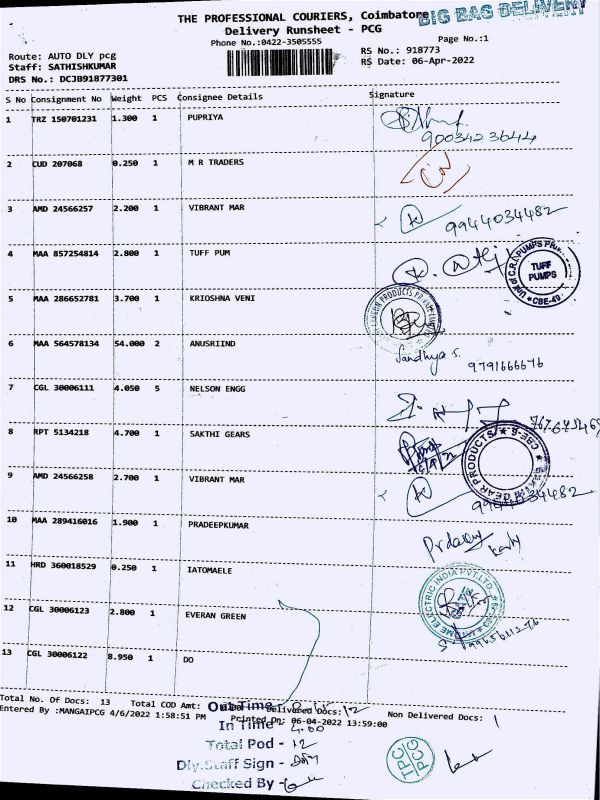 THE PROFESSIONAL COURIERS, Coimbatore
BIG BAG DELIVERY
Delivery Runsheet - PCG
Phone No.:0422-3505555
Page No.:1
Route: AUTO DLY pcg
RS No.: 918773
Staff: SATHISHKUMAR
RS Date: 06-Apr-2022
DRS No.: DCJB91877301
S No Consignment No Weight PCS Consignee Details Signature
1 TRZ 150701231 1.300 1 PUPRIYA
9003423644
2 CUD 207068 0.250 1 M R TRADERS
3 AMD 24566257 2.200 1 VIBRANT MAR
9944034482
4 MAA 857254814 2.800 1 TUFF PUM
TUFF PUMPS
5 MAA 286652781 3.700 1 KRIOSHNA VENI
6 MAA 564578134 54.000 2 ANUSRIIND
Sandhya S. 9791666676
7 CGL 30006111 4.050 5 NELSON ENGG
8 RPT 5134218 4.700 1 SAKTHI GEARS
9 AMD 24566258 2.700 1 VIBRANT MAR
9944034482
10 MAA 289416016 1.900 1 PRADEEPKUMAR
11 HRD 360018529 0.250 1 IATOMAELE
12 CGL 30006123 2.800 1 EVERAN GREEN
13 CGL 30006122 8.950 1 DO
Total No. Of Docs: 13 Total COD Amt: Delivered Docs: 12 Non Delivered Docs: 1
Entered By :MANGAIPCG 4/6/2022 1:58:51 PM Printed On: 06-04-2022 13:59:00
Out Time -
In Time -
Total Pod - 12
Dly.Staff Sign -
Checked By -
TPC
PCG